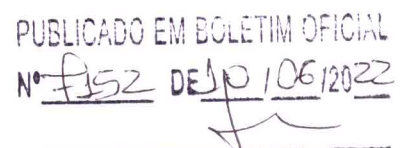 PUBLICADO EM BOLETIM OFICIAL
Nº 7152 DE 10 / 06 / 2022